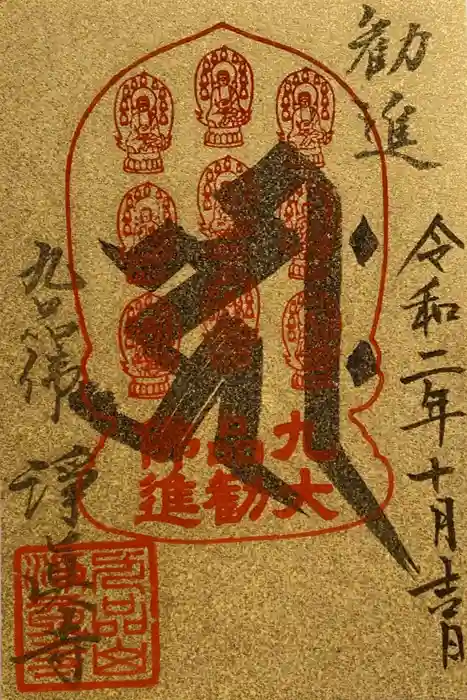 勧進
令和二年十月吉日
ह्रीः
九品佛
大勧進
九品佛 淨眞寺
九品山